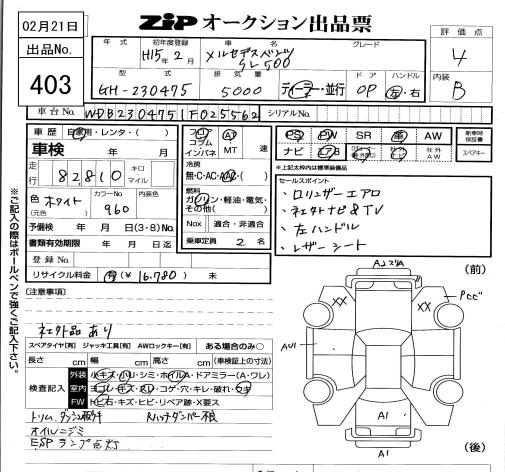 02月21日
ZIP オークション出品票
出品No.
403
年式
初年度登録
車名
グレード
H15年2月
メルセデスベンツ
SL500
型式
排気量
ドア
ハンドル
GH-230475
5000
ディーラー・並行
OP
左・右
評価点
4
内装
B
車台No.
WDB2304751F025562
シリアルNo.
車歴
自家用・レンタ・( )
車検
年 月
走行
82810
キロ
マイル
色
ホワイト
(元色)
カラーNo.
960
内装色
予備検 年 月 日(3・8)No.
書類有効期限 年 月 日迄
登録No.
リサイクル料金
有(¥16,780)
未
フロア
コラム
インパネ
A
MT
速
冷房
無・C・AC・AAC・( )
燃料
ガソリン・軽油・電気・
その他( )
Nox
適合・非適合
乗車定員 2 名
PS
PW
SR
革
AW
ナビ
エアB
社外
AW
新車時
保証書
スペアキー
*上記太枠内は標準装備品
セールスポイント
・ロリンザーエアロ
・左ハンドル
・レザーシート
(注意事項)
社外品あり
スペアタイヤ[有]
ジャッキ工具[有]
AWロックキー[有]
ある場合のみ○
長さ cm
幅 cm
高さ cm
(車検証上の寸法)
検査記入
外装
小キズ・ハリ・シミ・ホイルA・ドアミラー(A・ワレ)
室内
ヨゴレ・キズ・スレ・コゲ・穴・キレ・破れ・ウキ
FW
トビ石・キズ・ヒビ・リペア跡・X要ス
オイルニジミ
ESPランプ点灯
Rハッチダンパー不良
※ご記入の際はボールペンで強くご記入下さい。
(前)
XX
XX
AU1
A1
A1
(後)